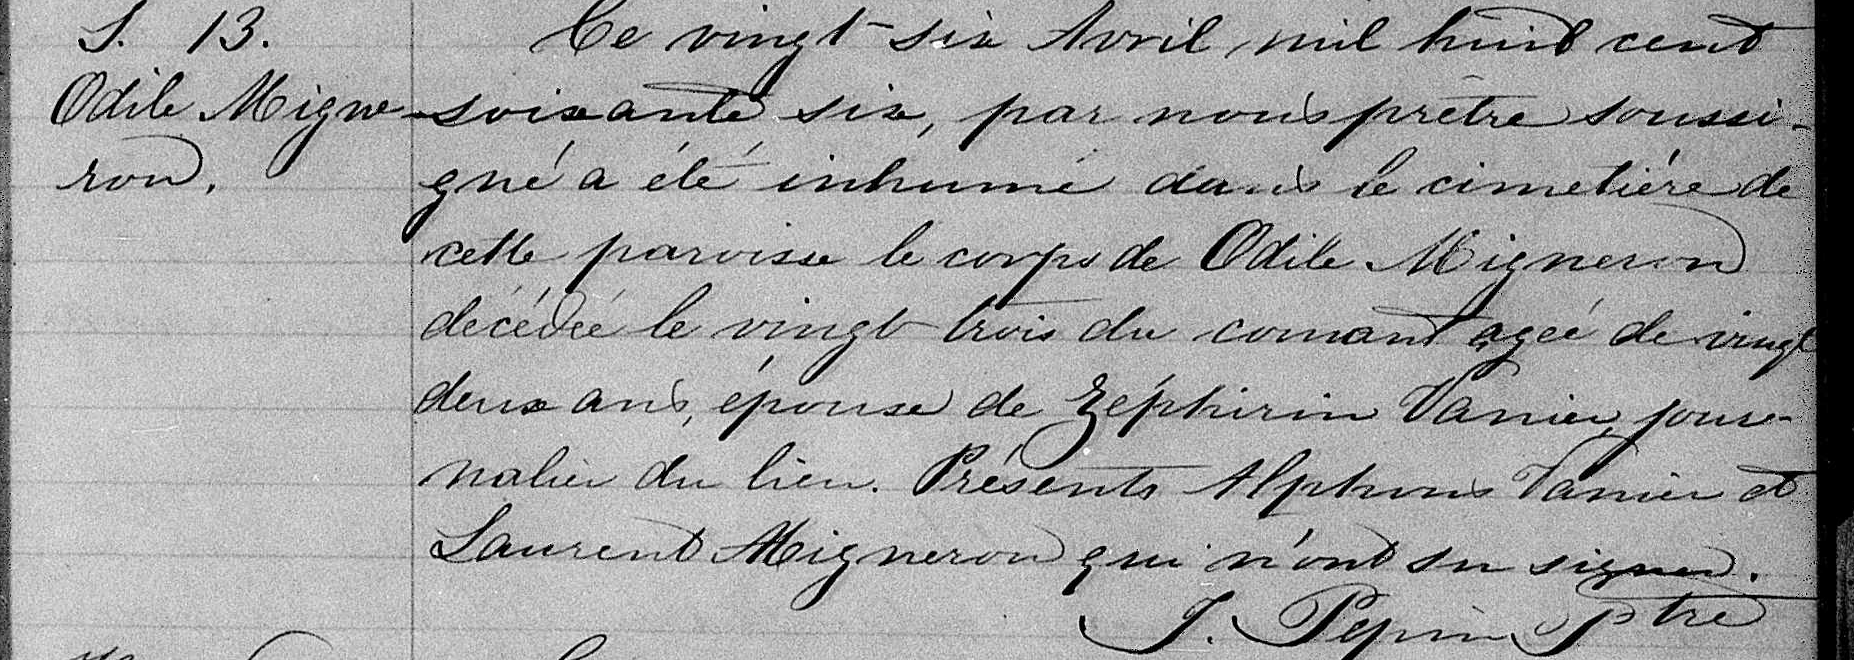 S. 13.
Odile Migne-
ron.
Ce vingt-six Avril, mil huit cent
soixante six, par nous prêtre soussi-
gné a été inhumé dans le cimetière de
cette paroisse le corps de Odile Migneron
décédée le vingt-trois du courant agée de vingt
deux ans, épouse de Zéphirin Vanier, jour-
nalier du lieu. Présents Alphons Vanier et
Laurent Migneron qui n'ont su signer.
J. Pepin Ptre